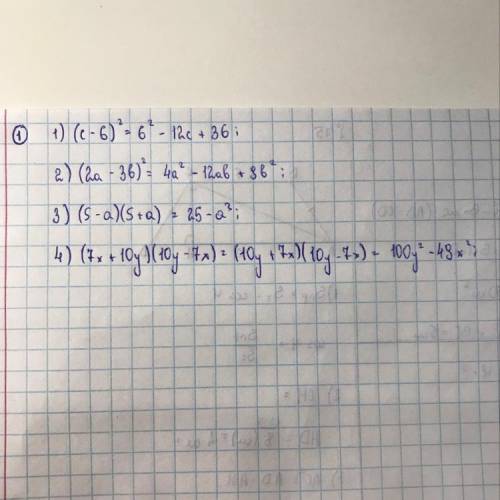 ① 1) (c-6)² = 6² - 12c + 36;
2) (2a - 3b)² = 4a² - 12ab + 9b²;
3) (5-a)(5+a) = 25 - a²;
4) (7x + 10y)(10y - 7x) = (10y + 7x)(10y - 7x) = 100y² - 49x²;